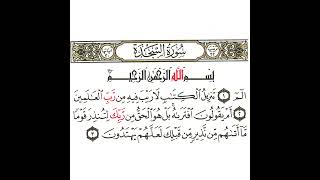 سُورَةُ السَّجْدَةِ
بِسْمِ اللَّهِ الرَّحْمَٰنِ الرَّحِيمِ
الٓمٓ ١ تَنزِيلُ الْكِتَابِ لَا رَيْبَ فِيهِ مِن رَّبِّ الْعَالَمِينَ
٢ أَمْ يَقُولُونَ افْتَرَاهُ بَلْ هُوَ الْحَقُّ مِن رَّبِّكَ لِتُنذِرَ قَوْمًا
مَّا أَتَاهُم مِّن نَّذِيرٍ مِّن قَبْلِكَ لَعَلَّهُمْ يَهْتَدُونَ ٣